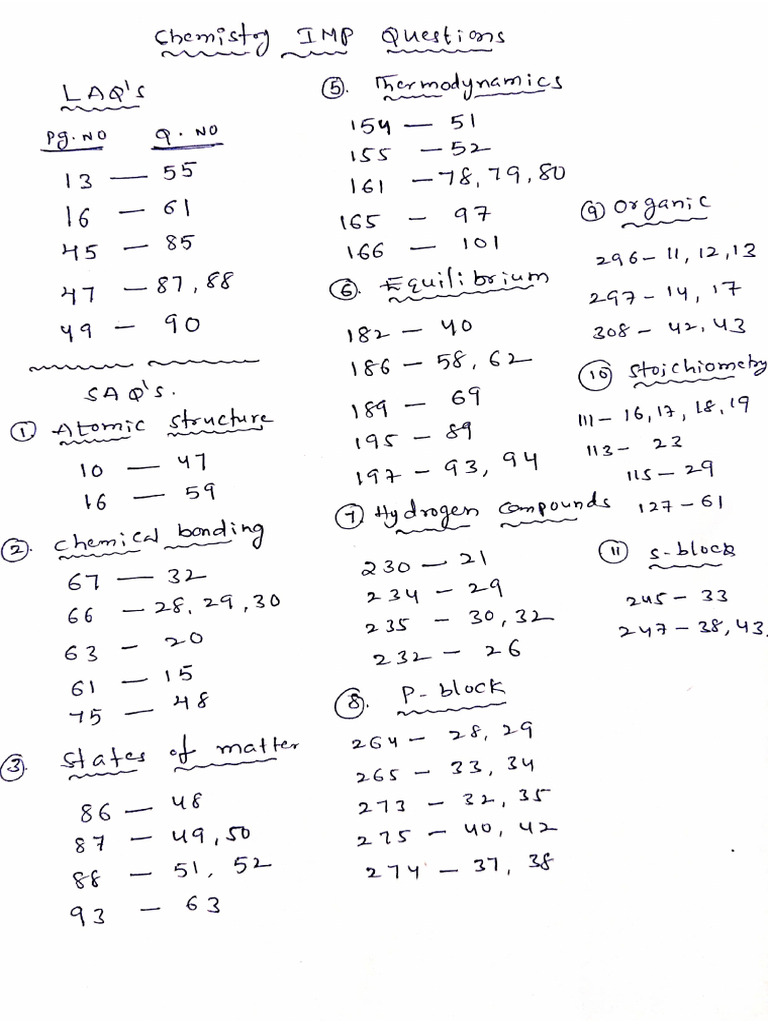 Chemistry IMP Questions
LAQ's
Pg.NO Q.NO
13 — 55
16 — 61
45 — 85
47 — 87, 88
49 — 90
SAQ's.
① Atomic structure
10 — 47
16 — 59
②. chemical bonding
67 — 32
66 — 28, 29, 30
63 — 20
61 — 15
75 — 48
③. States of matter
86 — 48
87 — 49, 50
88 — 51, 52
93 — 63
⑤. Thermodynamics
154 — 51
155 — 52
161 — 78, 79, 80
165 — 97
166 — 101
⑥. Equilibrium
182 — 40
186 — 58, 62
189 — 69
195 — 89
197 — 93, 94
⑦ Hydrogen compounds
230 — 21
234 — 29
235 — 30, 32
232 — 26
⑧. P-block
264 — 28, 29
265 — 33, 34
273 — 32, 35
275 — 40, 42
274 — 37, 38
⑨ Organic
296 — 11, 12, 13
297 — 14, 17
308 — 42, 43
⑩ Stoichiometry
111 — 16, 17, 18, 19
113 — 23
115 — 29
127 — 61
⑪ S-block
245 — 33
247 — 38, 43.